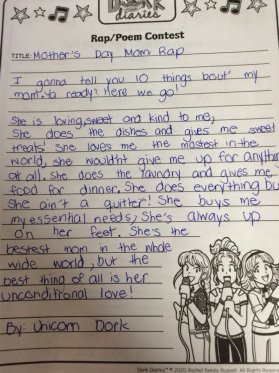 DORK
diaries
Rap/Poem Contest
TITLE: Mother's Day Mom Rap
I gonna tell you 10 things bout' my
mom. Ya ready? Here we go!
She is loving, sweet and kind to me,
She does the dishes and gives me sweet
treats! She loves me the mostest in the
world, she wouldn't give me up for anythin
at all. She does the laundry and gives me
food for dinner. She does everything but
She ain't a quitter! She buys me
my essential needs, She's always up
on her feet. She's the
bestest mom in the whole
wide world, but the
best thing of all is her
unconditional love!
By: Unicorn Dork
Dork Diaries™ © 2020 Rachel Renée Russell. All Rights Reserv